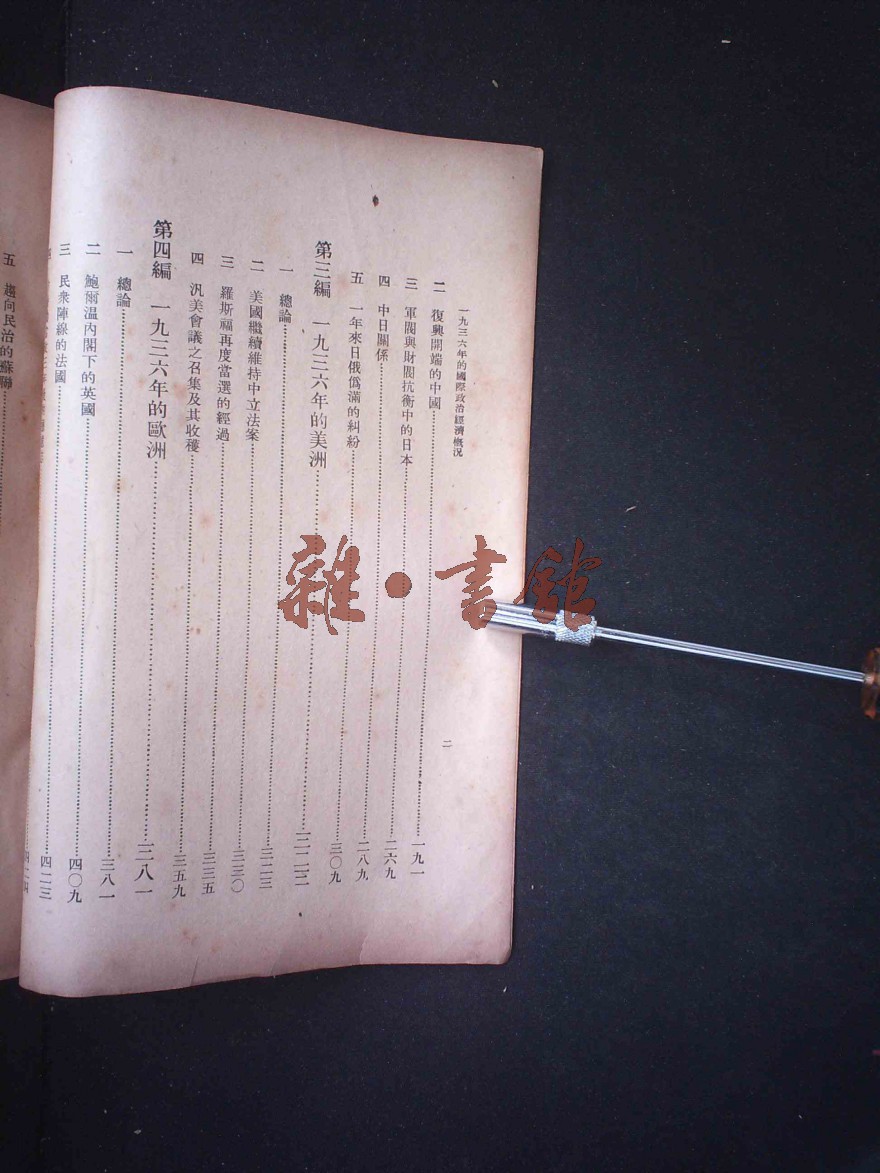 一九三六年的國際政治經濟概況
二
二 復興開端的中國……一九一
三 軍閥與財閥抗衡中的日本……二六九
四 中日關係……二八九
五 一年來日俄僞滿的糾紛……三〇九
第三編 一九三六年的美洲……三二三
一 總論……三二三
二 美國繼續維持中立法案……三三〇
三 羅斯福再度當選的經過……三三五
四 汎美會議之召集及其收穫……三五九
第四編 一九三六年的歐洲……三八一
一 總論……三八一
二 鮑爾溫內閣下的英國……四〇九
三 民衆陣線的法國……四二三
五 趨向民治的蘇聯……
雜·書館